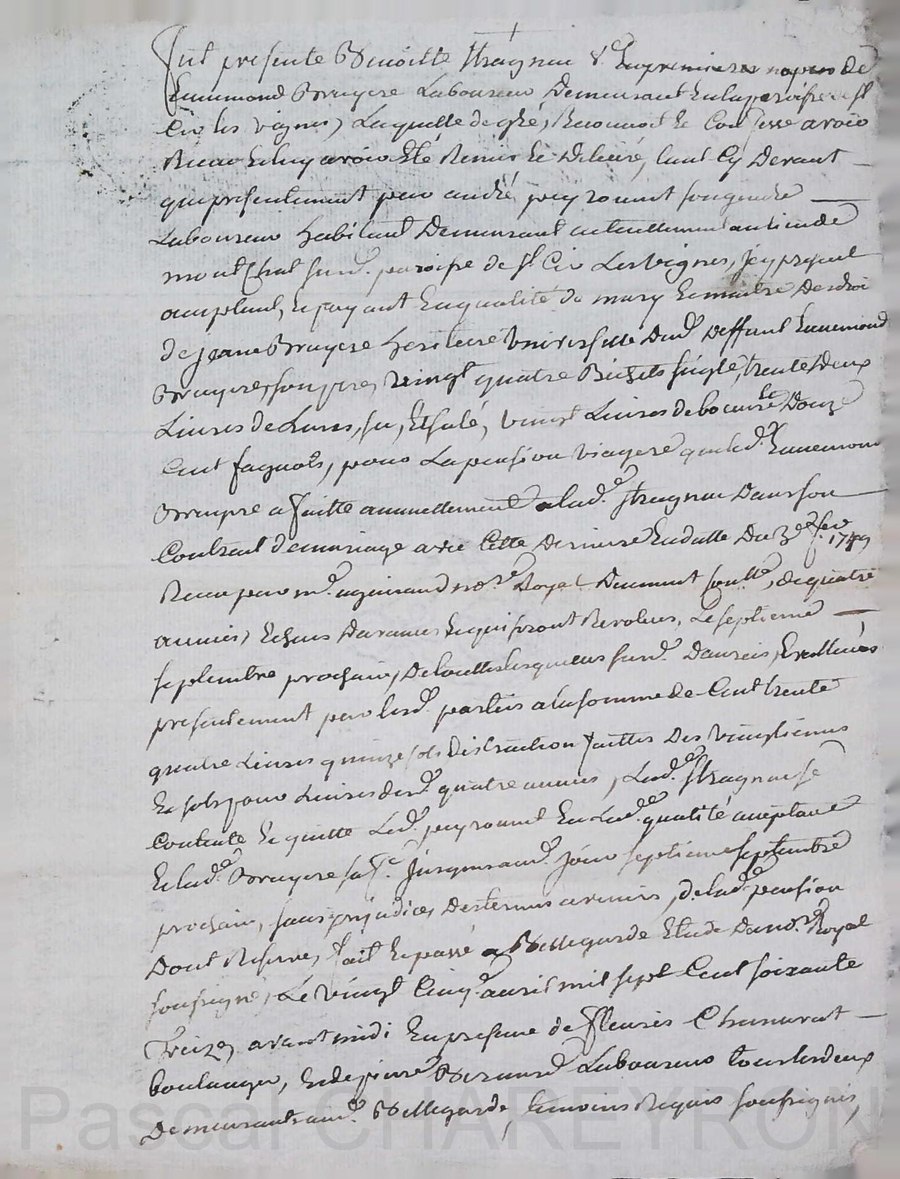 fut presente Benoitte Stragnat v.e en premieres nopces de
Ennemond Bruyere Laboureur Demeurant En la paroisse de St
Cir les vignes, Laquelle de gré, Reconnoit Et Confesse avoir
Receu Et luy avoir Eté Remis Et Delivré, tant Cy Devant
que presentement par andré peyronnet son gendre
Laboureur habitant Demeurant actuellement au lieu de
mont Chat sur d. paroisse de St Cir Les vignes, icy present
acceptant, Et payant En qualité de mary Et maitre Des droits
de jeanne Bruyere heritiere universelle Dud. Deffunt Ennemond
Bruyere, son pere, vingt quatre Bichets seigle, trente Deux
Livres de Lures, su, Et salé, vingt Livres de beurre Et Douze
Cent fagots, pour La pension viagere que led. Ennemond
Bruyere a faitte annuellement a lad.e Stragnat Dans son
Contrat de mariage avec Cette Derniere En datte Du 3e fev. 1749
Receu par m.e no.re Royal Duement Con.llé, de quatre
années, Echues Davance Et qui seront Revolues, Le septieme
septembre prochain, De touttes Lesquelles sus d. Danrées, Evalluées
presentement par lesd. parties a la somme de Cent trente
quatre Livres quinze sols Distraction faittes Des vingtiemes
Et sols pour Livres desd. quatre années, Lad.e Stragnat se
Contente Et quitte Led. peyronnet En sad.e qualité acceptant
Et lad.e Bruyere sa fe. jusques aud. jour septieme septembre
prochain, sans prejudice, Des termes avenirs, de lad.e pension
Dont Reserve, fait Et passé a Bellegarde Etude Du no.re Royal
soussigné, Le vingt Cinq avril mil sept Cent soixante
Treize, avant midi En presence de fleuris Chanavat
boulanger, Et de pierre Laboureur tous Les deux
Demeurants aud. Bellegarde, temoins Requis soussignés,
Pascal CHAREYRON